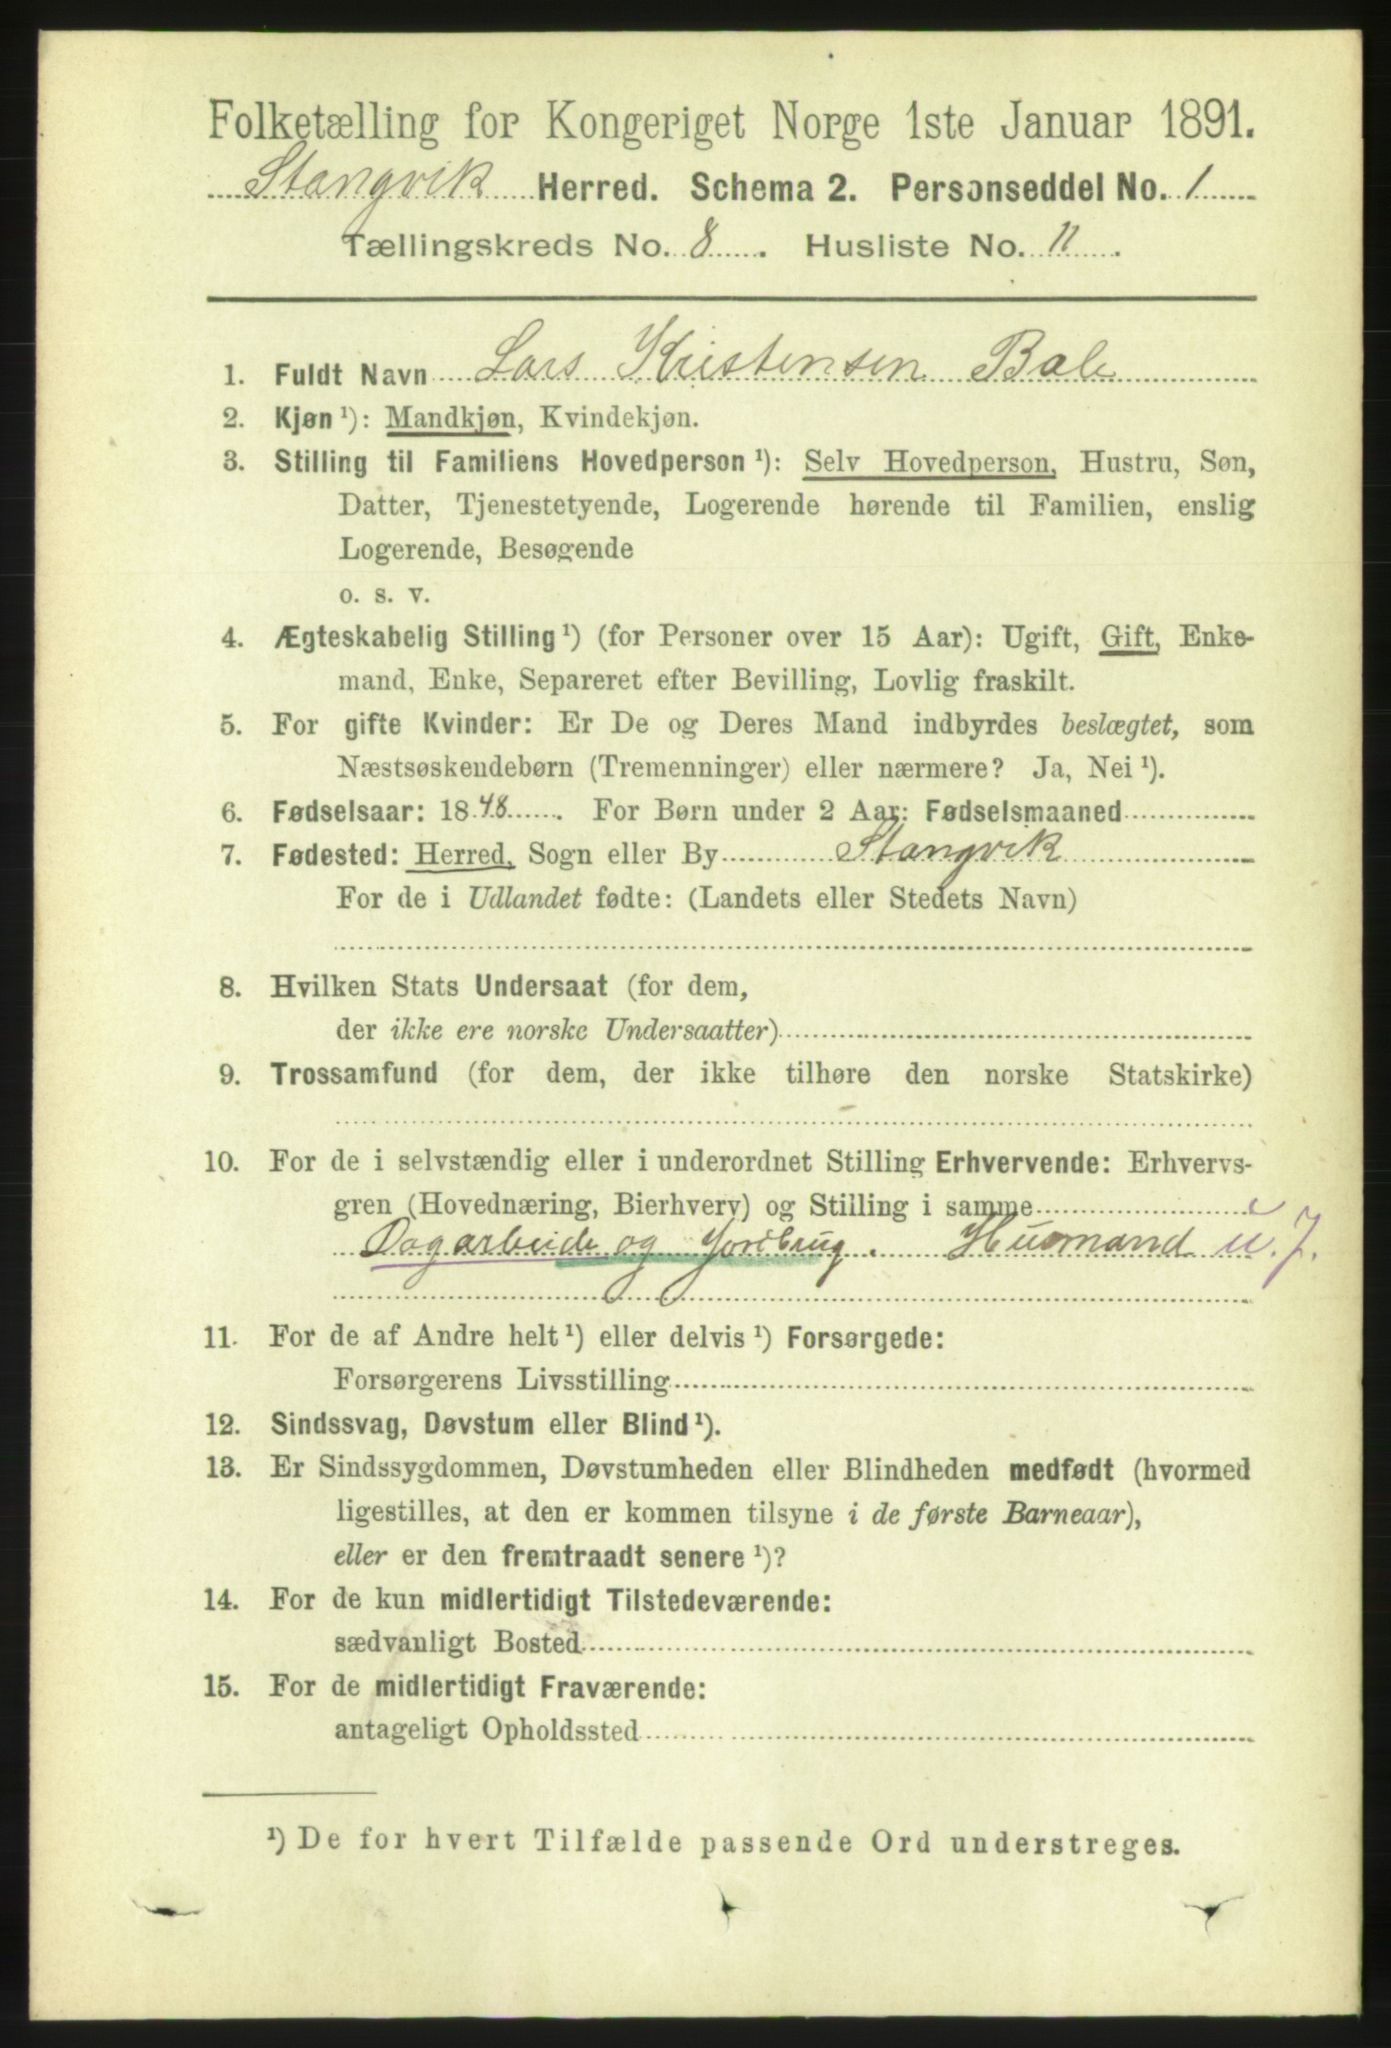 Folketælling for Kongeriget Norge 1ste Januar 1891.
Stangvik Herred. Schema 2. Personseddel No. 1
Tællingskreds No. 8. Husliste No. 11.
1. Fuldt Navn Lars Kristensen Bale
2. Kjøn ¹): Mandkjøn, Kvindekjøn.
3. Stilling til Familiens Hovedperson ¹): Selv Hovedperson, Hustru, Søn,
Datter, Tjenestetyende, Logerende hørende til Familien, enslig
Logerende, Besøgende
o. s. v.
4. Ægteskabelig Stilling ¹) (for Personer over 15 Aar): Ugift, Gift, Enke-
mand, Enke, Separeret efter Bevilling, Lovlig fraskilt.
5. For gifte Kvinder: Er De og Deres Mand indbyrdes beslægtet, som
Næstsøskendebørn (Tremenninger) eller nærmere? Ja, Nei ¹).
6. Fødselsaar: 1848. For Børn under 2 Aar: Fødselsmaaned
7. Fødested: Herred, Sogn eller By Stangvik
For de i Udlandet fødte: (Landets eller Stedets Navn)
8. Hvilken Stats Undersaat (for dem,
der ikke ere norske Undersaatter)
9. Trossamfund (for dem, der ikke tilhøre den norske Statskirke)
10. For de i selvstændig eller i underordnet Stilling Erhvervende: Erhvervs-
gren (Hovednæring, Bierhverv) og Stilling i samme
Dagarbeide og Jordbrug. Husmand u. J.
11. For de af Andre helt ¹) eller delvis ¹) Forsørgede:
Forsørgerens Livsstilling
12. Sindssvag, Døvstum eller Blind ¹).
13. Er Sindssygdommen, Døvstumheden eller Blindheden medfødt (hvormed
ligestilles, at den er kommen tilsyne i de første Barneaar),
eller er den fremtraadt senere ¹)?
14. For de kun midlertidigt Tilstedeværende:
sædvanligt Bosted
15. For de midlertidigt Fraværende:
antageligt Opholdssted
¹) De for hvert Tilfælde passende Ord understreges.